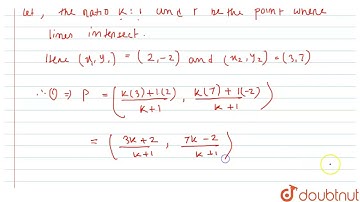 Let, the ratio K:1 and P be the point where
lines intersect.
Here (x, y,) = (2,-2) and (x₂, y₂) = (3,7)
∴ (1) ⇒ P = ( K(3)+1(2) / K+1 , K(7)+1(-2) / K+1 )
= ( 3K+2 / K+1 , 7K-2 / K+1 )
doubtnut